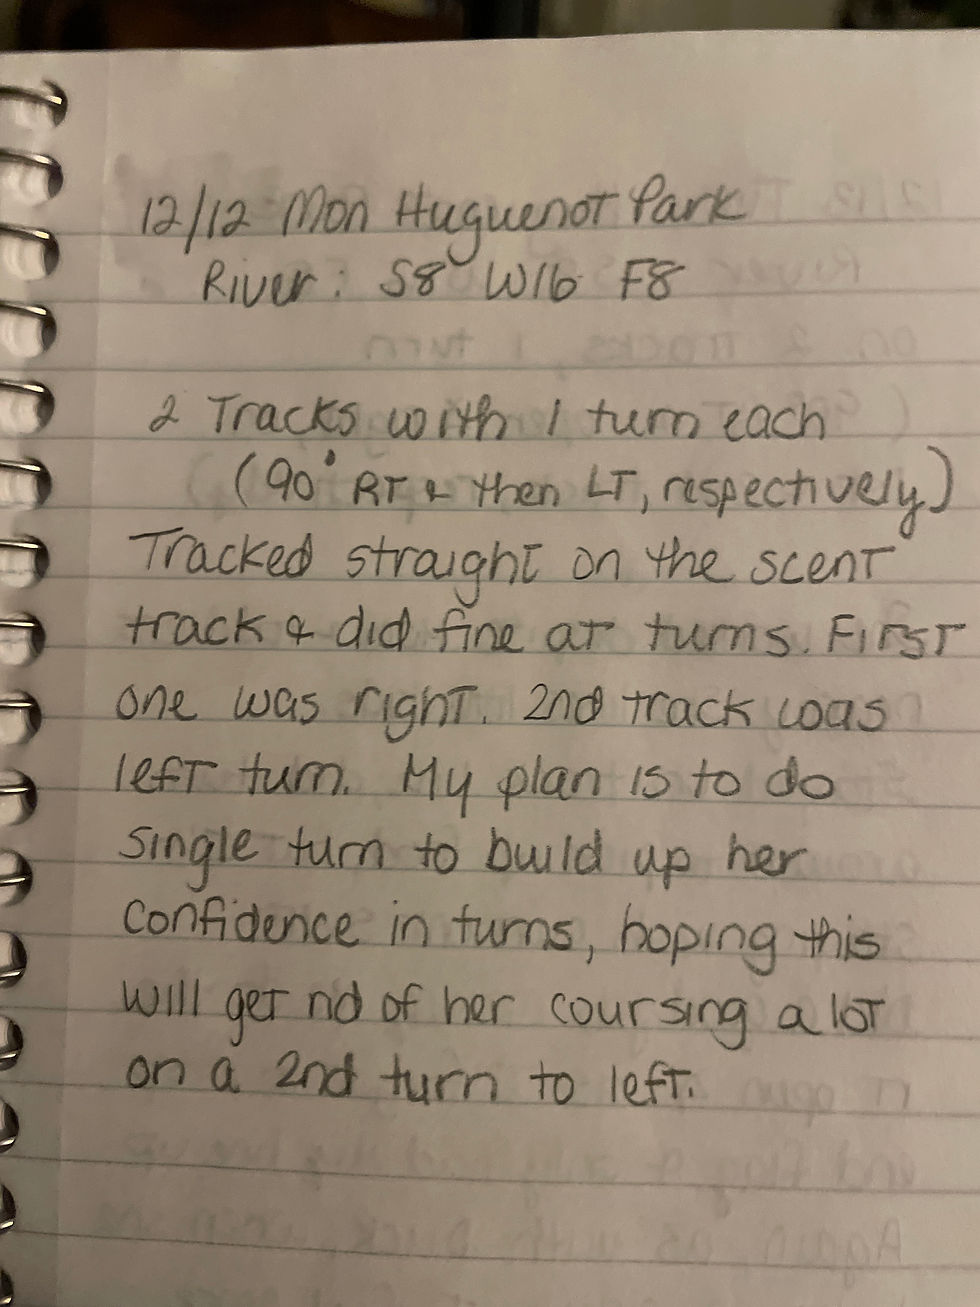 12/12 Mon Huguenot Park
River: S8 W16 F8
2 Tracks with 1 turn each
(90° RT & then LT, respectively)
Tracked straight on the scent
track & did fine at turns. First
one was right. 2nd track was
left turn. My plan is to do
single turn to build up her
confidence in turns, hoping this
will get rid of her coursing a lot
on a 2nd turn to left.